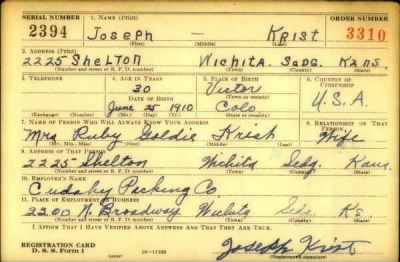 SERIAL NUMBER 1. NAME (Print) ORDER NUMBER
2394 JOSEPH — KRIST 3310
(First) (Middle) (Last)
2. ADDRESS (Print)
2225 SHELTON WICHITA. SEDG. KANS.
(Number and street or R. F. D. number) (Town) (County) (State)
3. TELEPHONE 4. AGE IN YEARS 5. PLACE OF BIRTH 6. COUNTRY OF CITIZENSHIP
30 Victor
DATE OF BIRTH (Town or county)
June 25 1910 Colo U.S.A.
(Exchange) (Number) (Mo.) (Day) (Yr.) (State or country)
7. NAME OF PERSON WHO WILL ALWAYS KNOW YOUR ADDRESS 8. RELATIONSHIP OF THAT PERSON
Mrs Ruby Goldie Krist Wife
(Mr., Mrs., Miss) (First) (Middle) (Last)
9. ADDRESS OF THAT PERSON
2225 Shelton Wichita Sedg. Kans.
(Number and street or R. F. D. number) (Town) (County) (State)
10. EMPLOYER'S NAME
Cudahy Packing Co.
11. PLACE OF EMPLOYMENT OR BUSINESS
2200 N. Broadway Wichita Sedg. Ks.
(Number and street or R. F. D. number) (Town) (County) (State)
I AFFIRM THAT I HAVE VERIFIED ABOVE ANSWERS AND THAT THEY ARE TRUE.
REGISTRATION CARD
D. S. S. Form 1 Joseph Krist
(over)